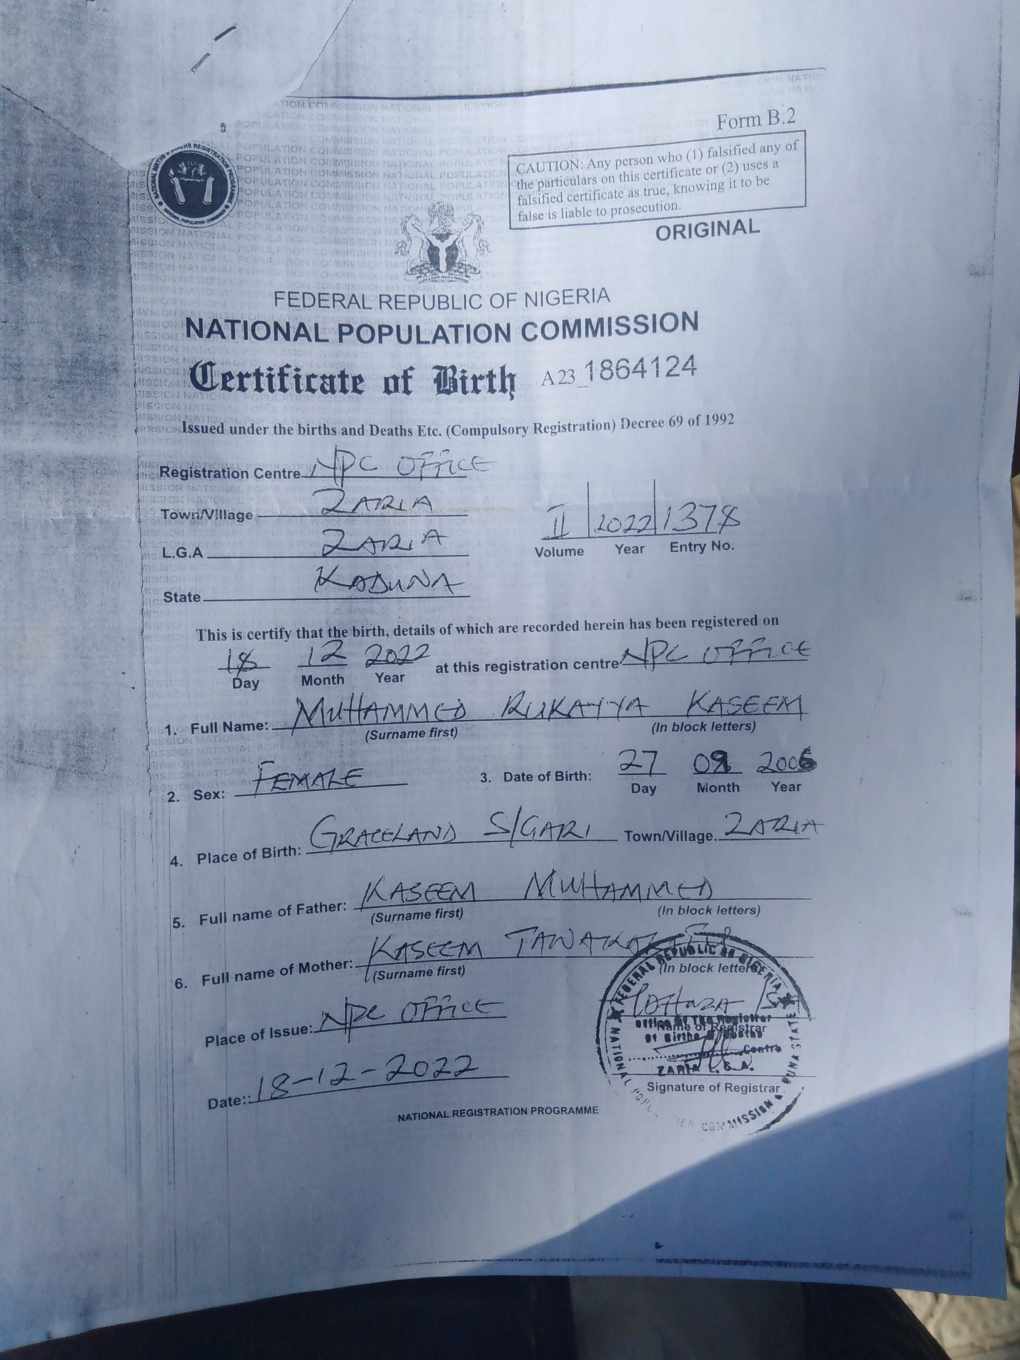 Form B.2
CAUTION: Any person who (1) falsified any of
the particulars on this certificate or (2) uses a
falsified certificate as true, knowing it to be
false is liable to prosecution.
ORIGINAL
FEDERAL REPUBLIC OF NIGERIA
NATIONAL POPULATION COMMISSION
Certificate of Birth A23_1864124
Issued under the births and Deaths Etc. (Compulsory Registration) Decree 69 of 1992
Registration Centre NPC OFFICE
Town/Village ZARIA
L.G.A ZARIA
State KADUNA
II 2022 1378
Volume Year Entry No.
This is certify that the birth, details of which are recorded herein has been registered on
18 12 2022 at this registration centre NPC OFFICE
Day Month Year
1. Full Name: MUHAMMED RUKAYYA KASEEM
(Surname first) (In block letters)
2. Sex: FEMALE 3. Date of Birth: 27 09 2006
Day Month Year
4. Place of Birth: GRACELAND S/GARI Town/Village. ZARIA
5. Full name of Father: KASEEM MUHAMMED
(Surname first) (In block letters)
6. Full name of Mother: KASEEM
(Surname first) (In block letters)
Place of Issue: NPC OFFICE
Name of Registrar
Date:: 18-12-2022
Signature of Registrar
NATIONAL REGISTRATION PROGRAMME
FEDERAL REPUBLIC OF NIGERIA
Office of The Registrar
Of Births
Centre
ZARIA L.G.A.